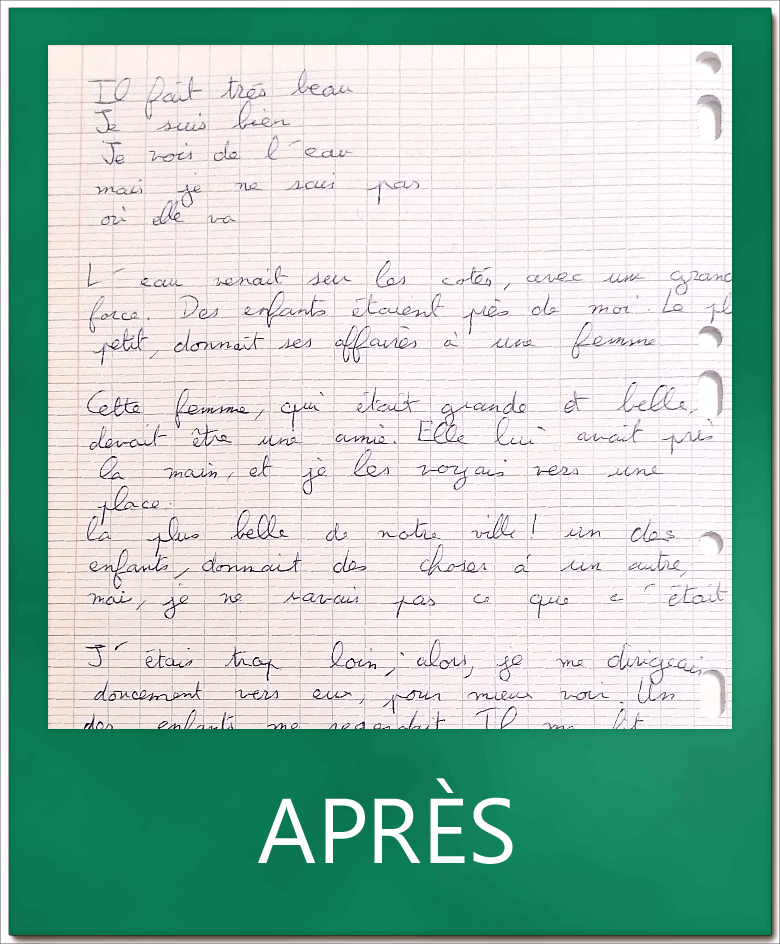 Il fait très beau
Je suis bien
Je vois de l'eau
mais je ne sais pas
où elle va
L'eau venait sur les cotés, avec une grand
force. Des enfants étaient près de moi. Le pl
petit, donnait ses affaires à une femme
Cette femme, qui était grande et belle,
devait être une amie. Elle lui avait pris
la main, et je les voyais vers une
place.
la plus belle de notre ville! un des
enfants, donnait des choses à un autre,
mai, je ne savais pas ce que c'était
J'étais trop loin, alors, je me dirigeais
doucement vers eux, pour mieux voir. Un
des enfants me regardait Il me fit
APRÈS